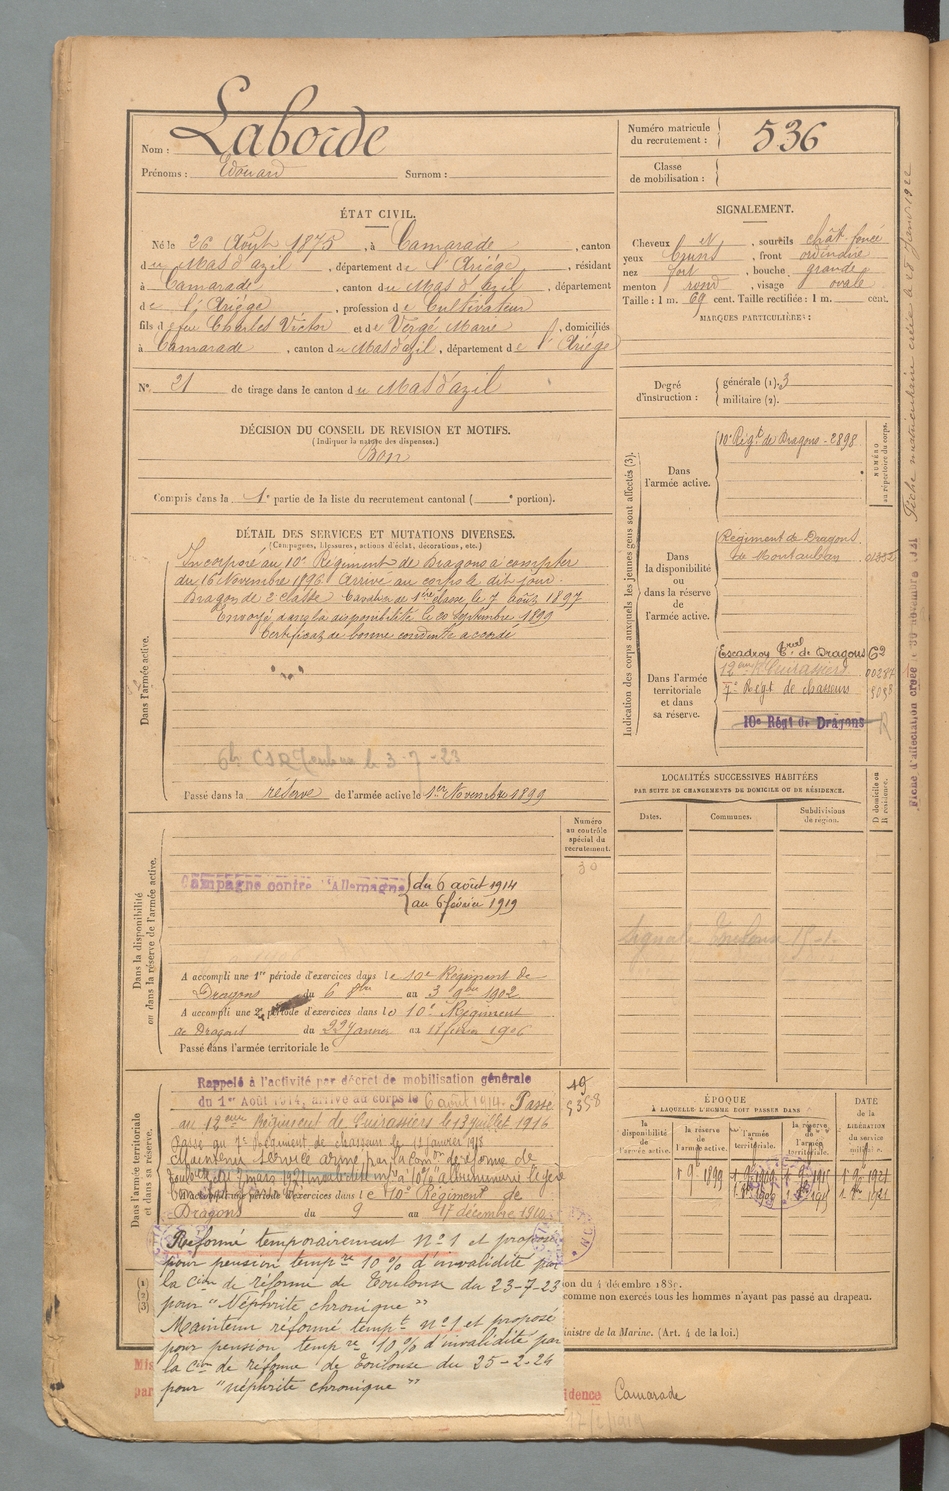 Nom : Laborde
Prénoms : Edouard Surnom :
Numéro matricule du recrutement : 536
Classe de mobilisation :
ÉTAT CIVIL.
Né le 26 Août 1875, à Camarade, canton
du Mas d'azil, département de l'Ariége, résidant
à Camarade, canton du Mas d'azil, département
de l'Ariége, profession de Cultivateur
fils de feu Charles Victor et de Vergé Marie, domiciliés
à Camarade, canton du Mas d'azil, département de l'Ariége
N° 21 de tirage dans le canton du Mas d'azil
DÉCISION DU CONSEIL DE REVISION ET MOTIFS.
(Indiquer la nature des dispenses.)
Bon
Compris dans la 1e partie de la liste du recrutement cantonal ( e portion).
SIGNALEMENT.
Cheveux N, sourcils chât. foncé
yeux bruns, front ordinaire
nez fort, bouche grande
menton rond, visage ovale
Taille : 1 m. 69 cent. Taille rectifiée : 1 m. cent.
MARQUES PARTICULIÈRES :
Degré d'instruction : générale (1). 3
militaire (2).
Indication des corps auxquels les jeunes gens sont affectés (3).
Dans l'armée active.
10e Régt de Dragons - 2898
NUMÉRO au répertoire du corps.
Dans la disponibilité ou dans la réserve de l'armée active.
Régiment de Dragons
de Montauban
Dans l'armée territoriale et dans sa réserve.
Escadron Tral de Dragons
12ème R. Cuirassiers
7e Régt de chasseurs
10e Régt de Dragons
DÉTAIL DES SERVICES ET MUTATIONS DIVERSES.
(Campagnes, blessures, actions d'éclat, décorations, etc.)
Dans l'armée active.
Incorporé au 10e Régiment de Dragons à compter
du 16 Novembre 1896. Arrivé au corps le dit jour.
Dragon de 2e classe. Cavalier de 1ère classe le 7 août 1897
Envoyé dans la disponibilité le 20 Septembre 1899
Certificat de bonne conduite accordé
le 3-7-23
Passé dans la réserve de l'armée active le 1er Novembre 1899
Dans la disponibilité ou dans la réserve de l'armée active.
Numéro au contrôle spécial du recrutement.
30
Campagne contre l'Allemagne du 6 août 1914
au 6 février 1919
A accompli une 1re période d'exercices dans le 10e Régiment de
Dragons du 6 8bre au 3 9bre 1902
A accompli une 2e période d'exercices dans le 10e Régiment
de Dragons du 22 Janvier au 18 février 1906
Passé dans l'armée territoriale le
LOCALITÉS SUCCESSIVES HABITÉES
PAR SUITE DE CHANGEMENTS DE DOMICILE OU DE RÉSIDENCE.
Dates. Communes. Subdivisions de région. D domicile ou R résidence.
Dans l'armée territoriale et dans sa réserve.
Rappelé à l'activité par décret de mobilisation générale
du 1er Août 1914, arrivé au corps le 6 août 1914. Passé
au 12ème Régiment de Cuirassiers le 13 juillet 1916
Passé au 7e Régiment de chasseurs le 11 janvier 1918
Maintenu service armé par la Comon de réforme de
10e Régiment de
Dragons du 9 au 17 décembre 1910
49
5358
ÉPOQUE
À LAQUELLE L'HOMME DOIT PASSER DANS
la disponibilité de l'armée active.
la réserve de l'armée active.
l'armée territoriale.
la réserve de l'armée territoriale.
DATE de la LIBÉRATION du service militaire.
Réformé temporairement N° 1 et proposé
pour pension tempre 10 % d'invalidité par
la Cion de réforme de Toulouse du 23-7-23
pour "Néphrite chronique"
Maintenu réformé tempt n° 1 et proposé
pour pension tempre 10 % d'invalidité par
la Cion de réforme de Toulouse du 25-2-24
pour "néphrite chronique"
du 4 décembre 1889.
comme non exercés tous les hommes n'ayant pas passé au drapeau.
ministre de la Marine. (Art. 4 de la loi.)
Camarade
Fiche d'affectation créée